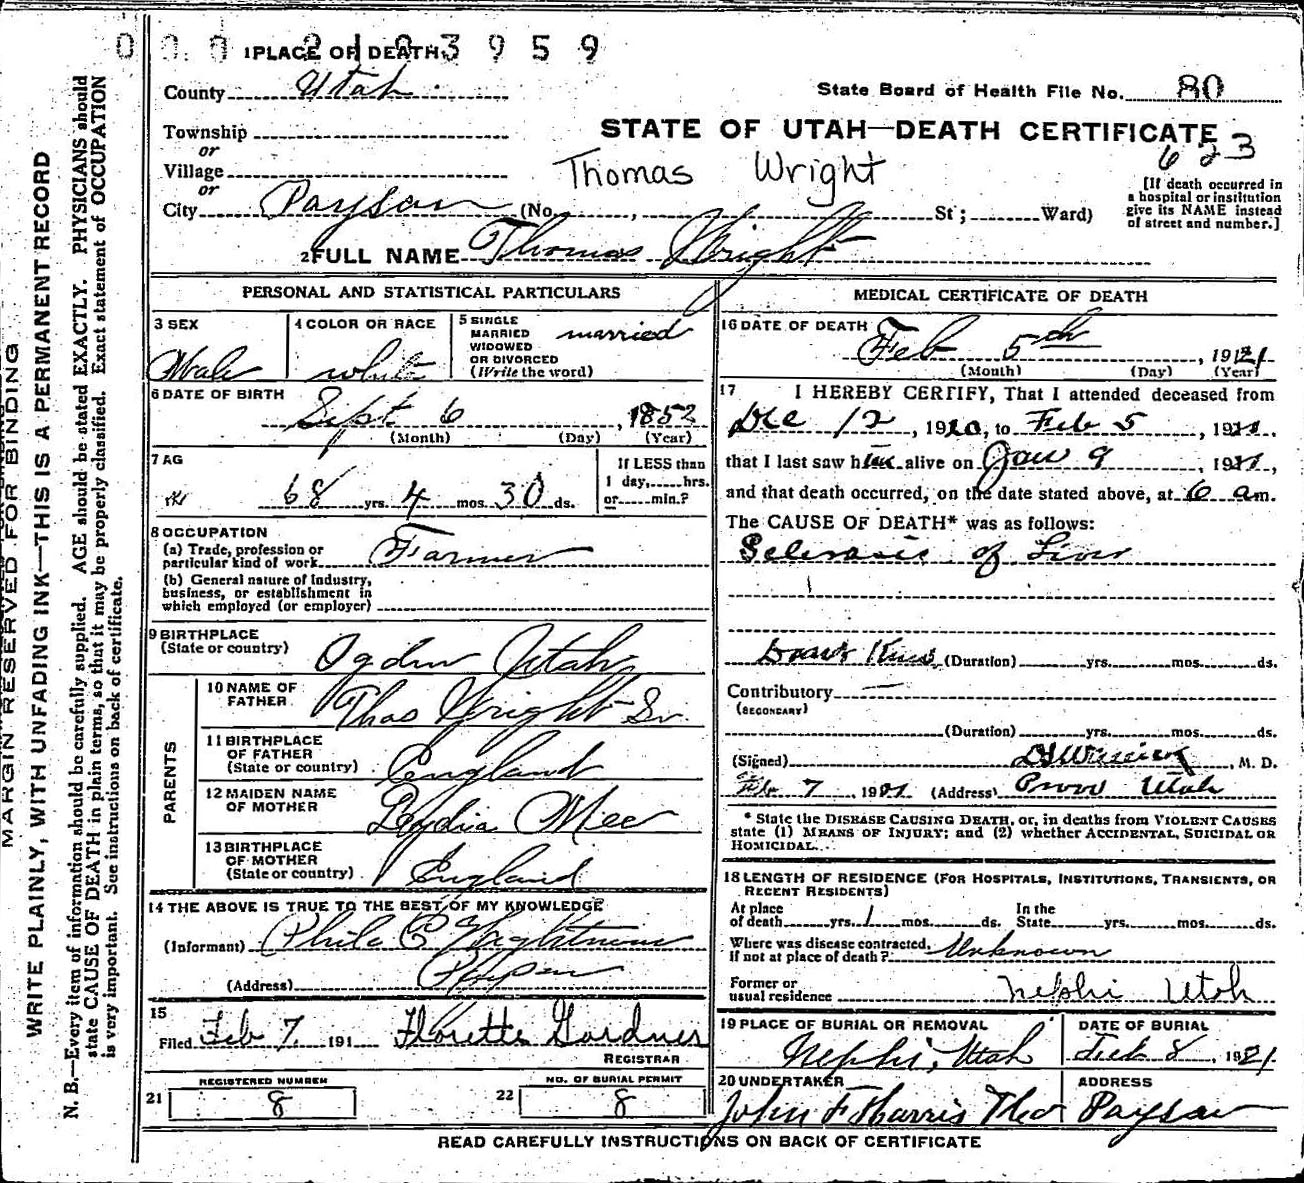 0 0 0 2 1 0 3 9 5 9
1 PLACE OF DEATH
County Utah
State Board of Health File No. 80
Township
or
Village
or
City Payson (No. , St ; Ward)
STATE OF UTAH—DEATH CERTIFICATE
623
Thomas Wright
[If death occurred in
a hospital or institution
give its NAME instead
of street and number.]
2 FULL NAME Thomas Wright
PERSONAL AND STATISTICAL PARTICULARS
3 SEX
Male
4 COLOR OR RACE
white
5 SINGLE
MARRIED
WIDOWED
OR DIVORCED
(Write the word)
married
6 DATE OF BIRTH
Sept 6 , 1852
(Month) (Day) (Year)
7 AG
68 yrs. 4 mos. 30 ds.
If LESS than
1 day, hrs.
or min.?
8 OCCUPATION
(a) Trade, profession or
particular kind of work Farmer
(b) General nature of Industry,
business, or establishment in
which employed (or employer)
9 BIRTHPLACE
(State or country)
Ogden Utah
PARENTS
10 NAME OF
FATHER
Thos Wright Sr.
11 BIRTHPLACE
OF FATHER
(State or country)
England
12 MAIDEN NAME
OF MOTHER
Lydia Mee
13 BIRTHPLACE
OF MOTHER
(State or country)
England
14 THE ABOVE IS TRUE TO THE BEST OF MY KNOWLEDGE
(Informant)
(Address)
15
Filed Feb 7, 191 Florette Gardner
REGISTRAR
REGISTERED NUMBER
21 8
NO. OF BURIAL PERMIT
22 8
MEDICAL CERTIFICATE OF DEATH
16 DATE OF DEATH
Feb 5th , 1921
(Month) (Day) (Year)
17 I HEREBY CERTIFY, That I attended deceased from
Dec 12, 1920, to Feb 5, 1921,
that I last saw him alive on Jan 9, 1921,
and that death occurred, on the date stated above, at 6 am.
The CAUSE OF DEATH* was as follows:
of Liver
(Duration) yrs. mos. ds.
Contributory
(SECONDARY)
(Duration) yrs. mos. ds.
(Signed) , M. D.
Feb 7, 1921 (Address) Provo Utah
* State the DISEASE CAUSING DEATH, or, in deaths from VIOLENT CAUSES
state (1) MEANS OF INJURY; and (2) whether ACCIDENTAL, SUICIDAL OR
HOMICIDAL.
18 LENGTH OF RESIDENCE (FOR HOSPITALS, INSTITUTIONS, TRANSIENTS, OR
RECENT RESIDENTS)
At place
of death yrs. 1 mos. ds.
In the
State yrs. mos. ds.
Where was disease contracted,
If not at place of death? Unknown
Former or
usual residence Nephi Utah
19 PLACE OF BURIAL OR REMOVAL
Nephi, Utah
DATE OF BURIAL
Feb 8, 1921
20 UNDERTAKER
John F Harris
ADDRESS
Payson
READ CAREFULLY INSTRUCTIONS ON BACK OF CERTIFICATE
MARGIN RESERVED FOR BINDING
WRITE PLAINLY, WITH UNFADING INK—THIS IS A PERMANENT RECORD
N. B.—Every item of information should be carefully supplied. AGE should be stated EXACTLY. PHYSICIANS should
state CAUSE OF DEATH in plain terms, so that it may be properly classified. Exact statement of OCCUPATION
is very important. See instructions on back of certificate.